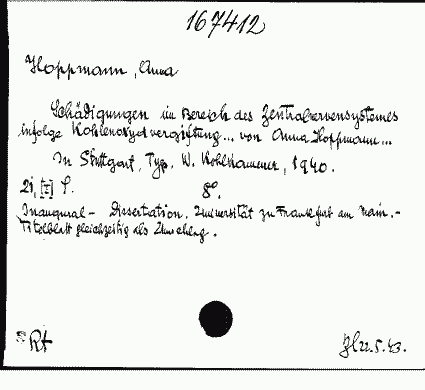 167412
Hoppmann, Anna
Schädigungen im Bereich des Zentralnervensystemes
infolge Kohlenoxydvergiftung... von Anna Hoppmann...
In Stuttgart, Typ. W. Kohlhammer, 1940.
21, [I] S. 8°.
Inaugural- Dissertation. Universität zu Frankfurt am Main.-
Titelblatt gleichzeitig als Umschlag.
Rt 22.5.43.